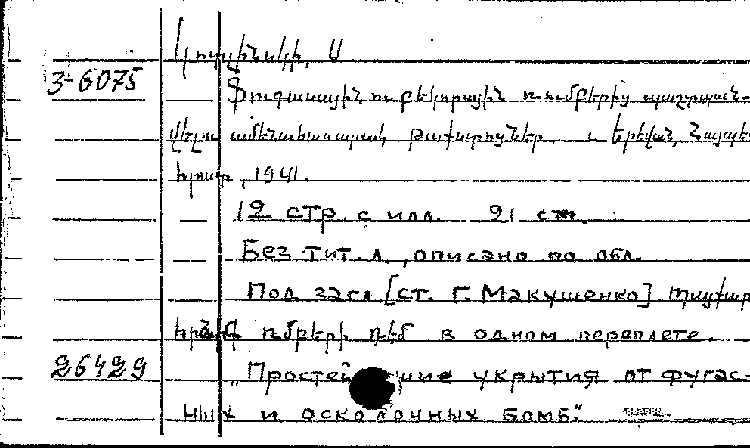 3-6075
ֆուգասային ու բեկորային ռումբերից պաշտպան-
վելու ամենահասարակ թաքստոցներ Երևան, Հայպետ
հրատ, 1941.
12 стр. с илл. 21 см.
Без тит. л., описано по обл.
Под загл [ст. Г. Макушенко]
ռմբերի դեմ в одном переплете.
26429 „Простейшие укрытия от фугас-
ных и осколочных бомб."